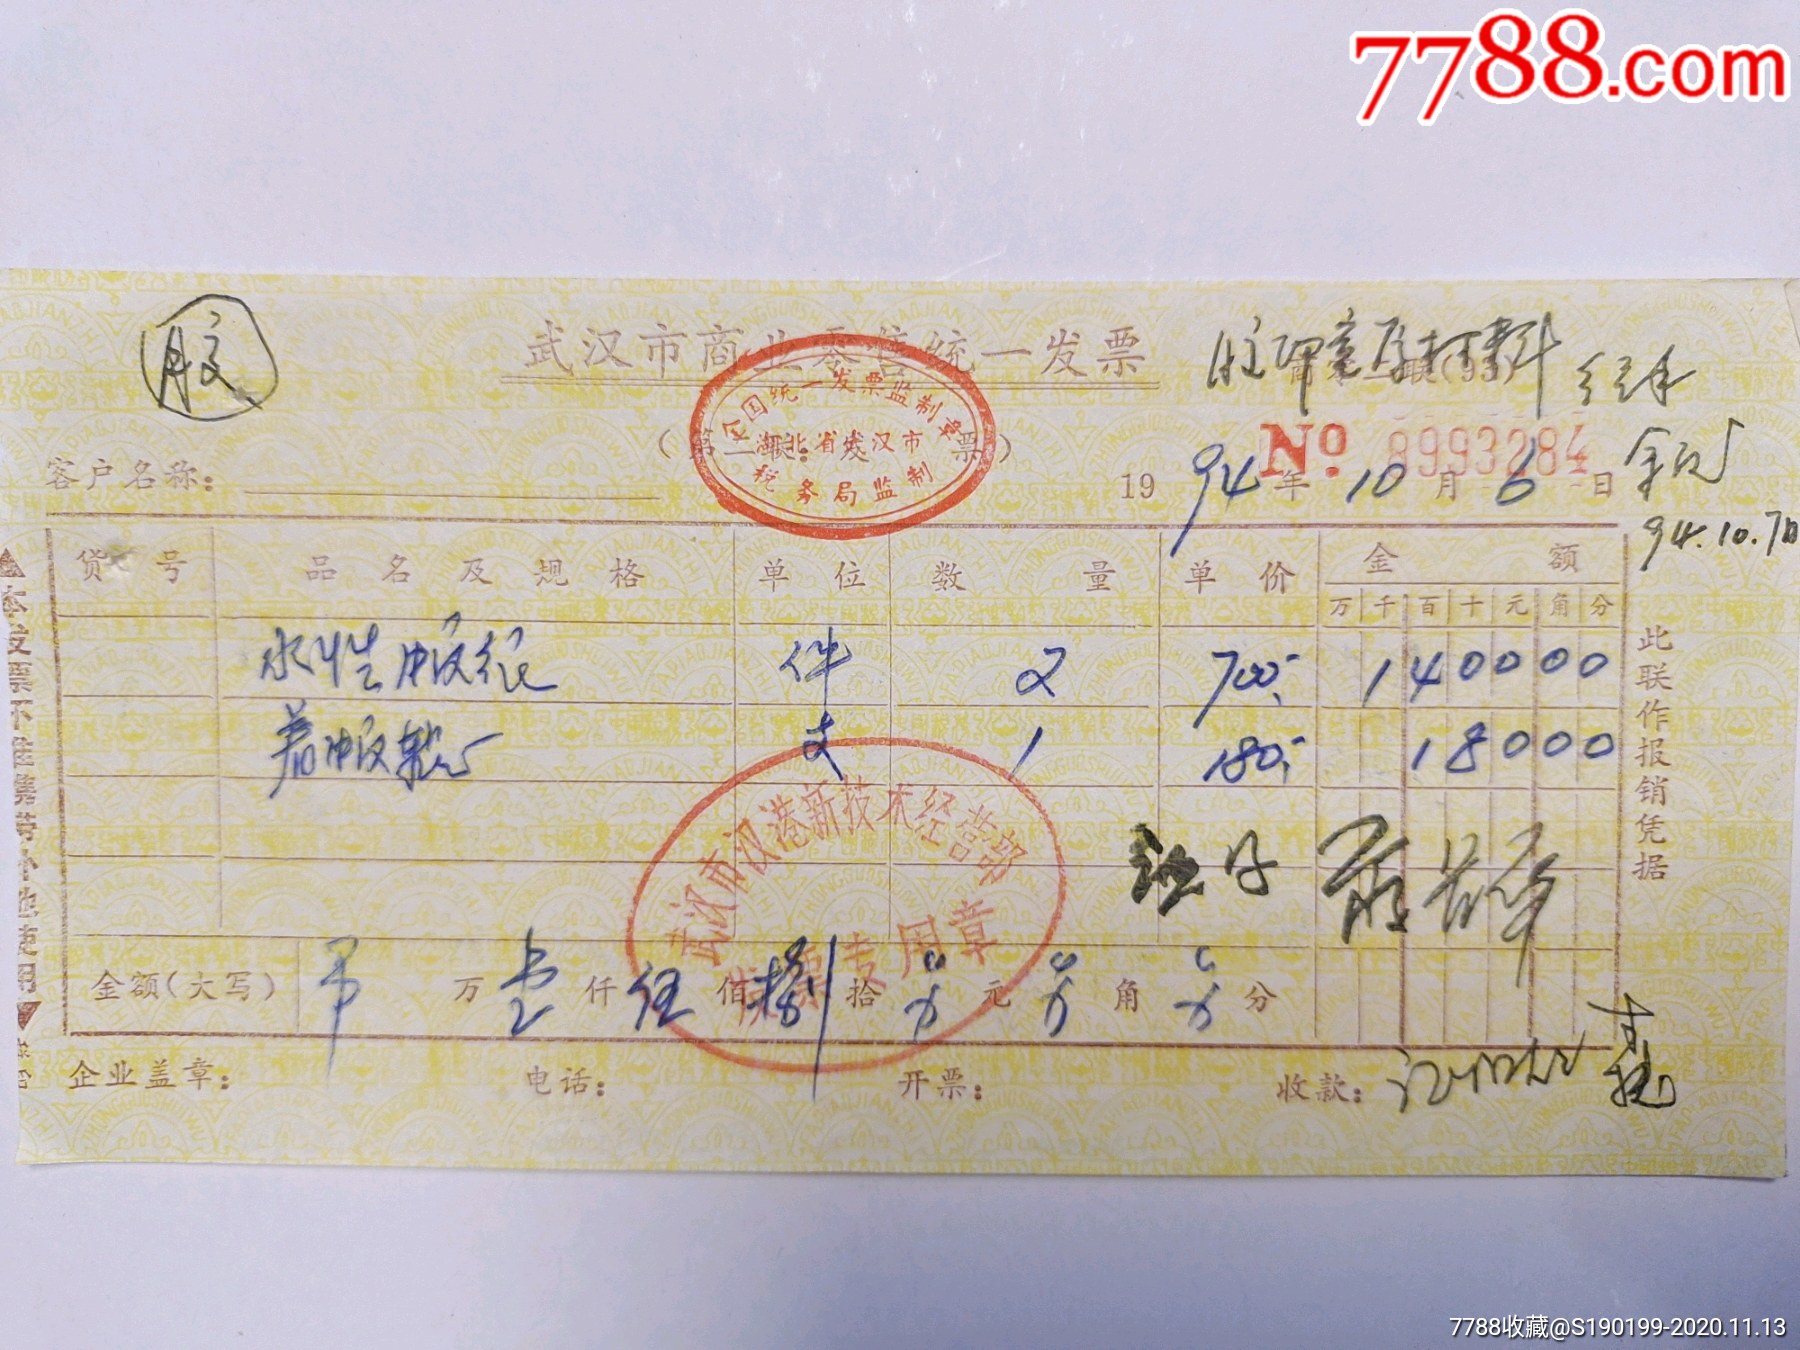 7788.com
胶
武汉市商业零售统一发票
全国统一发票监制章
湖北省武汉市
税务局监制
经手
余
94.10.7日
№ 8993284
客户名称:
1994年10月6日
货号 品名及规格 单位 数量 单价 金额
万千百十元角分
水性 件 2 700.- 140000
支 1 180.- 18000
武汉市汉港新技术经营部
发票专用章
金额(大写) 万壹仟伍佰捌拾元角分
企业盖章: 电话: 开票: 收款:
此联作报销凭据
本发票不准携带外地使用
7788收藏@S190199-2020.11.13